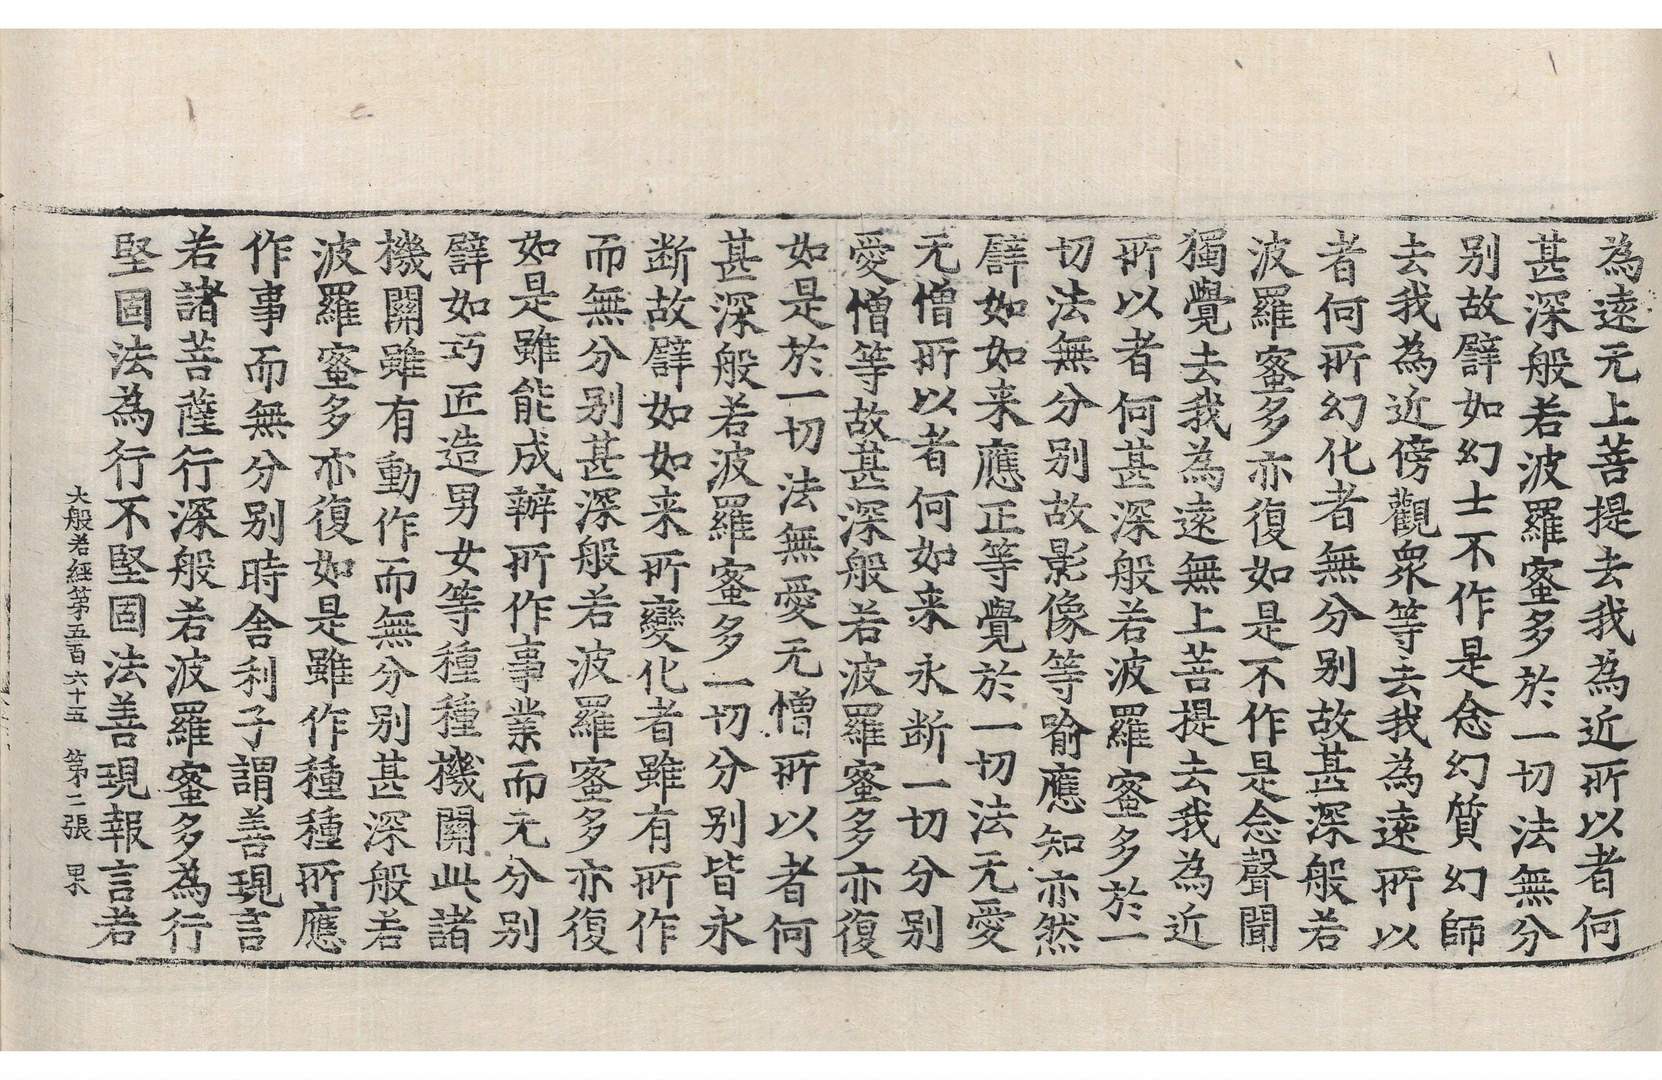 為遠无上菩提去我為近所以者何
甚深般若波羅蜜多於一切法無分
别故譬如幻士不作是念幻質幻師
去我為近傍觀衆等去我為遠所以
者何所幻化者無分别故甚深般若
波羅蜜多亦復如是不作是念聲聞
獨覺去我為遠無上菩提去我為近
所以者何甚深般若波羅蜜多於一
切法無分别故影像等喻應知亦然
譬如如来應正等覺於一切法无愛
无憎所以者何如来永断一切分别
愛憎等故甚深般若波羅蜜多亦復
如是於一切法無愛无憎所以者何
甚深般若波羅蜜多一切分别皆永
断故譬如如来所變化者雖有所作
而無分别甚深般若波羅蜜多亦復
如是雖能成辦所作事業而无分别
譬如巧匠造男女等種種機關此諸
機關雖有動作而無分别甚深般若
波羅蜜多亦復如是雖作種種所應
作事而無分别時舍利子謂善現言
若諸菩薩行深般若波羅蜜多為行
堅固法為行不堅固法善現報言若
大般若經第五百六十五 第二張 果